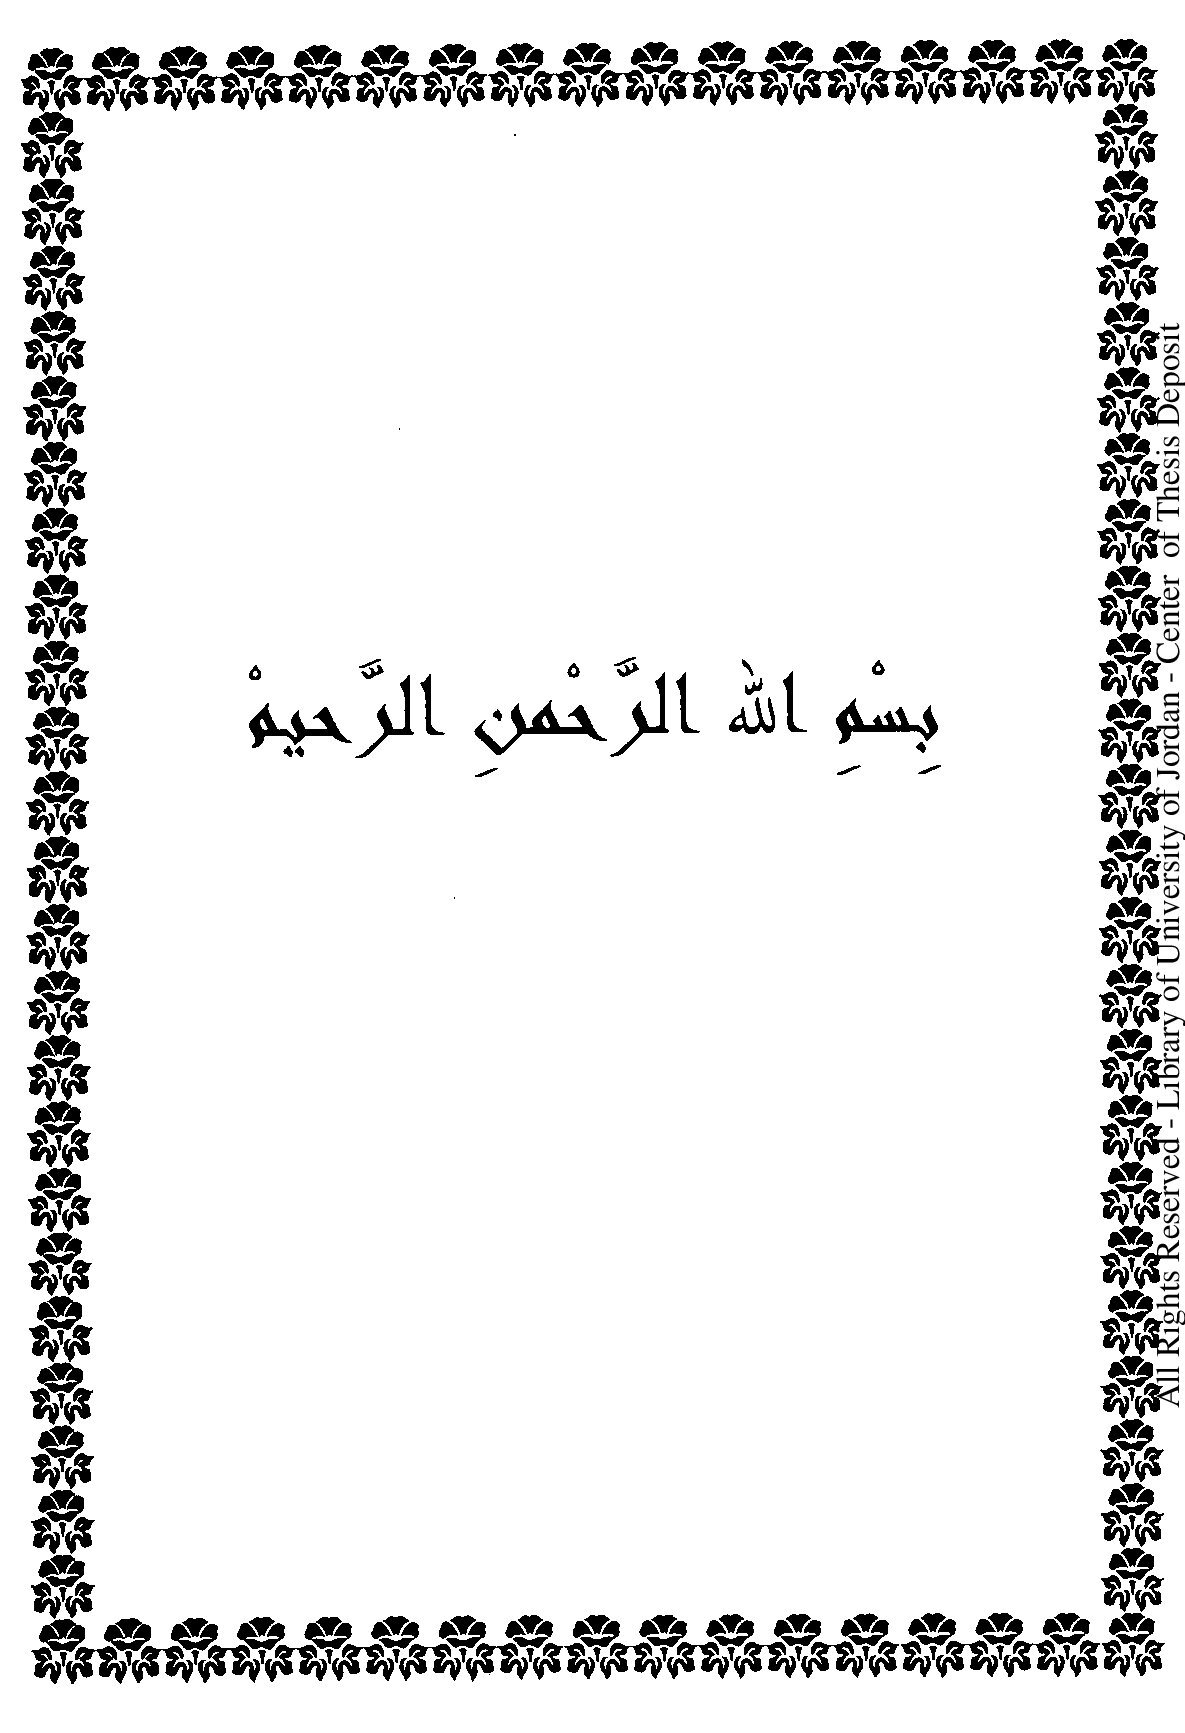 بِسْمِ اللّٰه الرَّحْمنِ الرَّحيمْ
All Rights Reserved - Library of University of Jordan - Center of Thesis Deposit